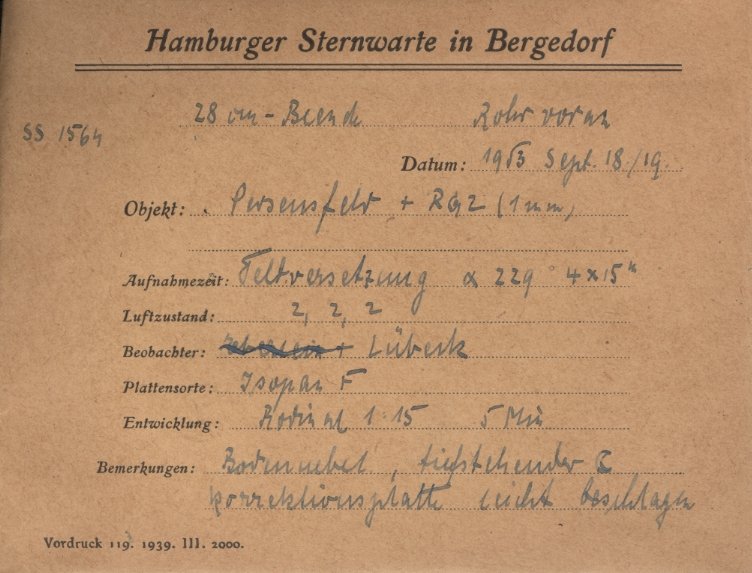 Hamburger Sternwarte in Bergedorf
28 cm-Blende Rohr voran
SS 1564
Datum: 1953 Sept. 18/19.
Objekt: Perseusfeld + RG2 (1mm)
Aufnahmezeit: Feldversetzung α 229° 4x15
Luftzustand: 2, 2, 2
Beobachter: + Lübeck
Plattensorte: Isopan F
Entwicklung: Rodinal 1:15 5 Min
Bemerkungen: Bodennebel, tiefstehender
Korrektionsplatte leicht beschlagen
Vordruck 119. 1939. III. 2000.